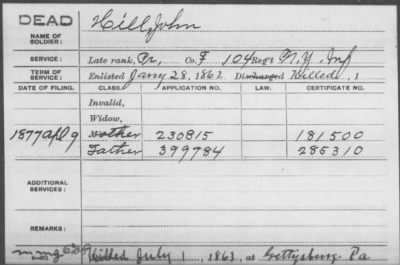 DEAD
Hill, John
NAME OF SOLDIER:
SERVICE: Late rank, Pr, Co. F 104 Reg't N.Y. Inf
TERM OF SERVICE: Enlisted Jany 28, 1862 Discharged Killed, 1
DATE OF FILING. CLASS. APPLICATION NO. LAW. CERTIFICATE NO.
Invalid,
Widow,
1877 Apl 9 Mother 230815 181500
Father 399784 285310
ADDITIONAL SERVICES:
REMARKS:
Killed July 1, 1863, at Gettysburg Pa